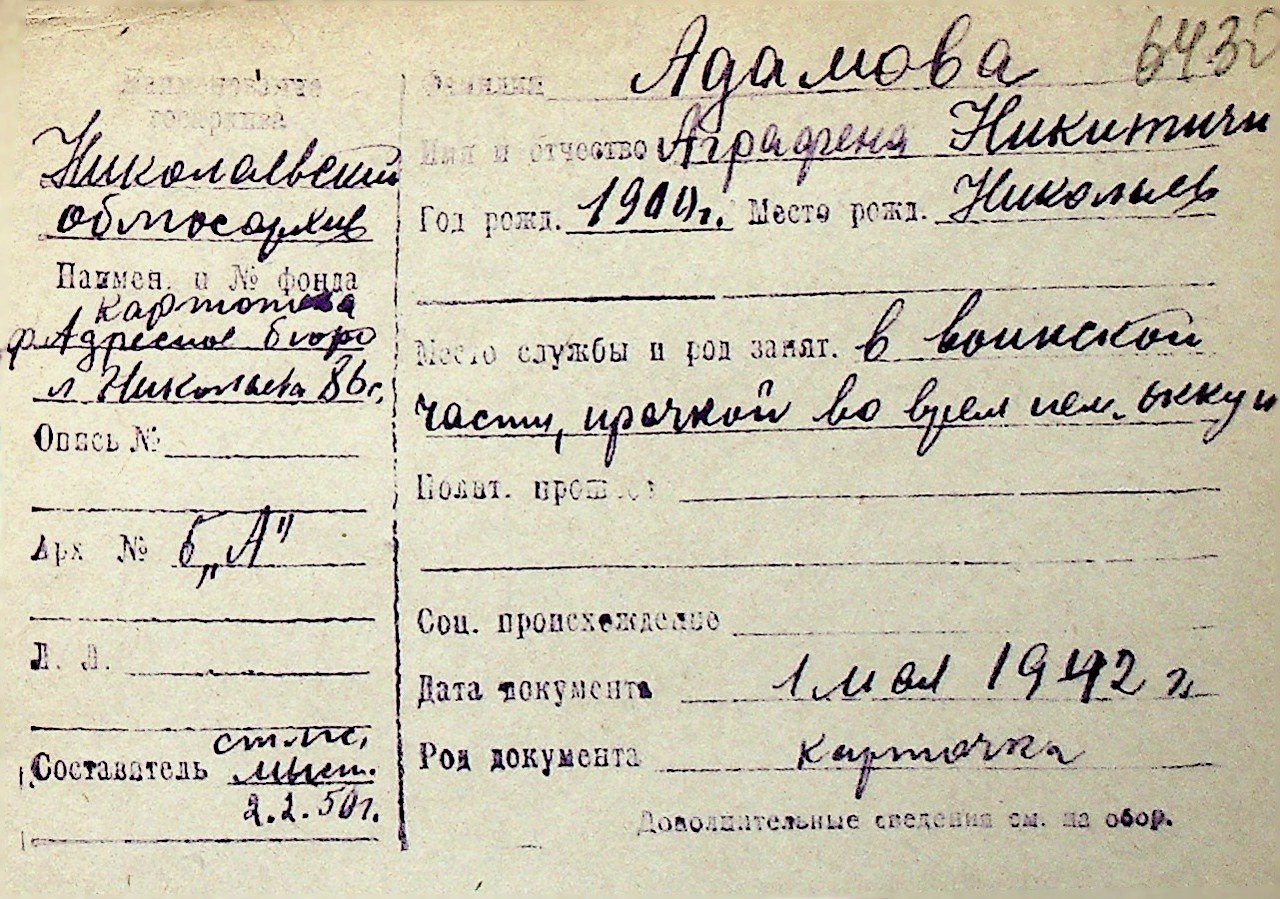 Наименование
госархива
Николаевский
облгосархив
Наимен. и № фонда
картотека
ф. Адресное бюро
Николаева
Опись №
Арх №
б „А"
Л. Л.
Составитель
2.2.50г.
Фамилия Адамова
Имя и отчество Аграфена Никитичн
Год рожд. 1900г. Место рожд. Николаев
Место службы и род занят. в воинской
части, прачкой во врем нем. оккуп
Полит. прошлое
Соц. происхождение
Дата документа 1 мая 1942 г
Род документа карточка
Дополнительные сведения см. на обор.